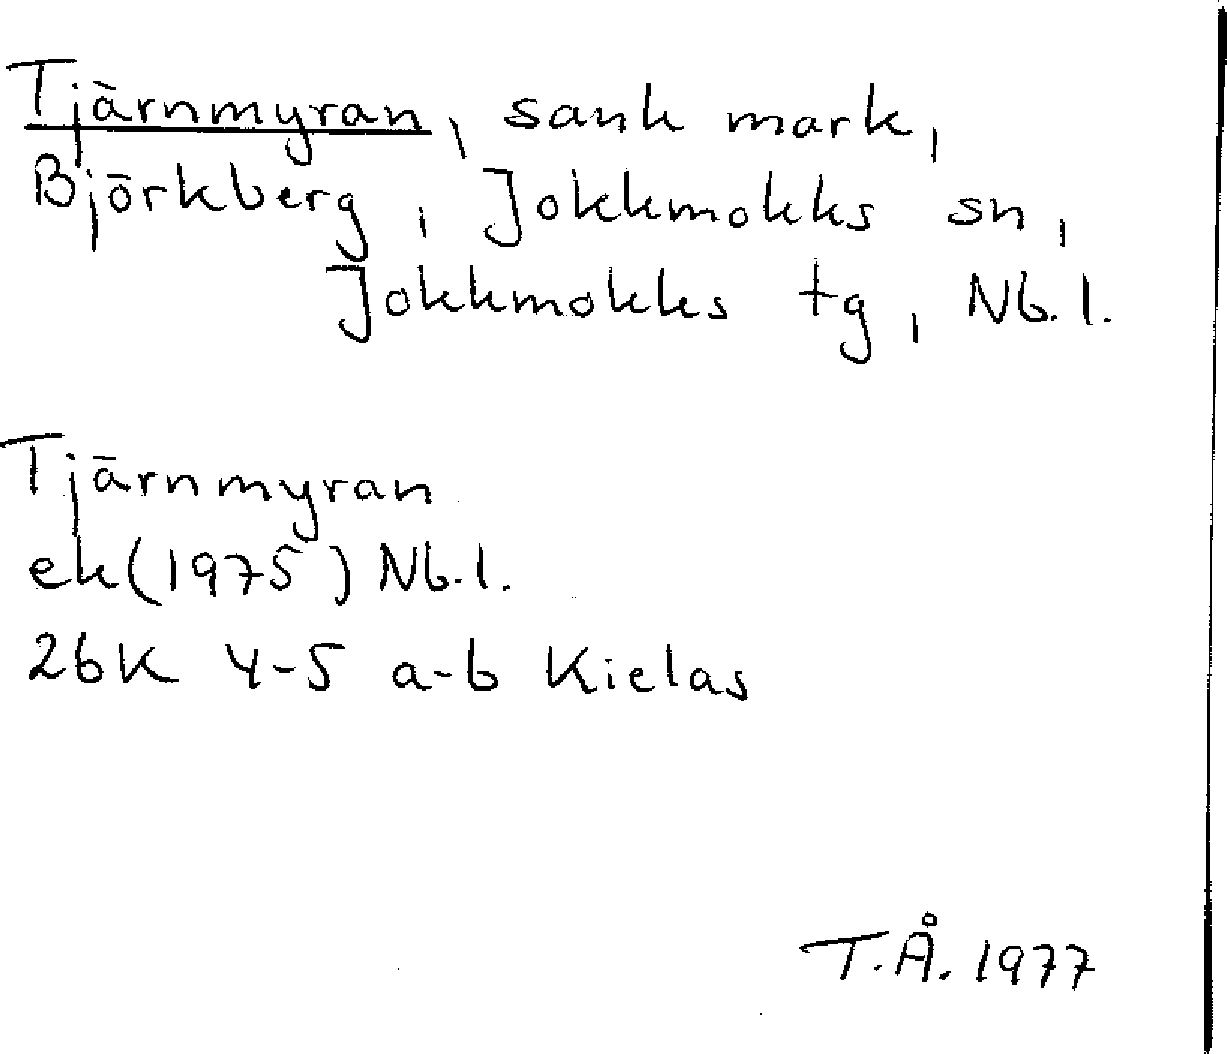 Tjärnmyran, sank mark,
Björkberg, Jokkmokks sn,
Jokkmokks tg, Nb.l.
Tjärnmyran
ek(1975) Nb.l.
26K 4-5 a-b Kielas
T.Å. 1977